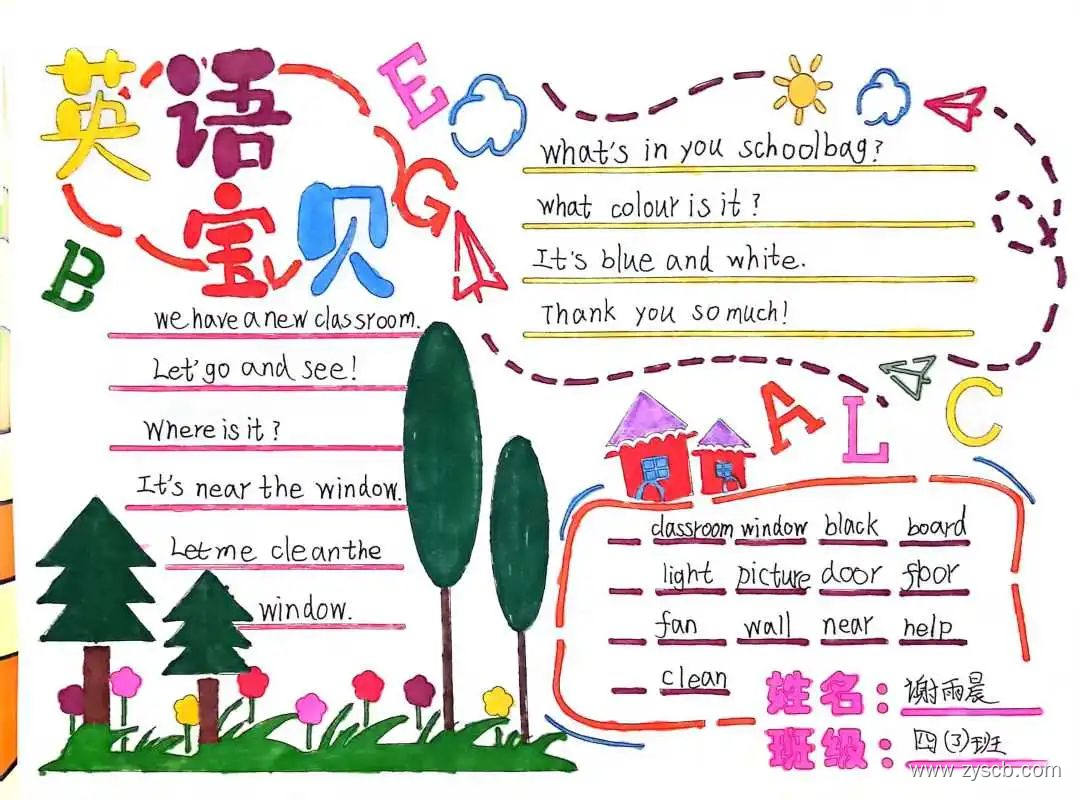 英语
宝贝
E
G
B
we have a new classroom.
Let' go and see!
Where is it?
It's near the window.
Let me clean the
window.
What's in you schoolbag?
what colour is it?
It's blue and white.
Thank you so much!
A L C
classroom window black board
light picture door floor
fan wall near help
clean
姓名：谢雨晨
班级：四(3)班
www.zyscb.com